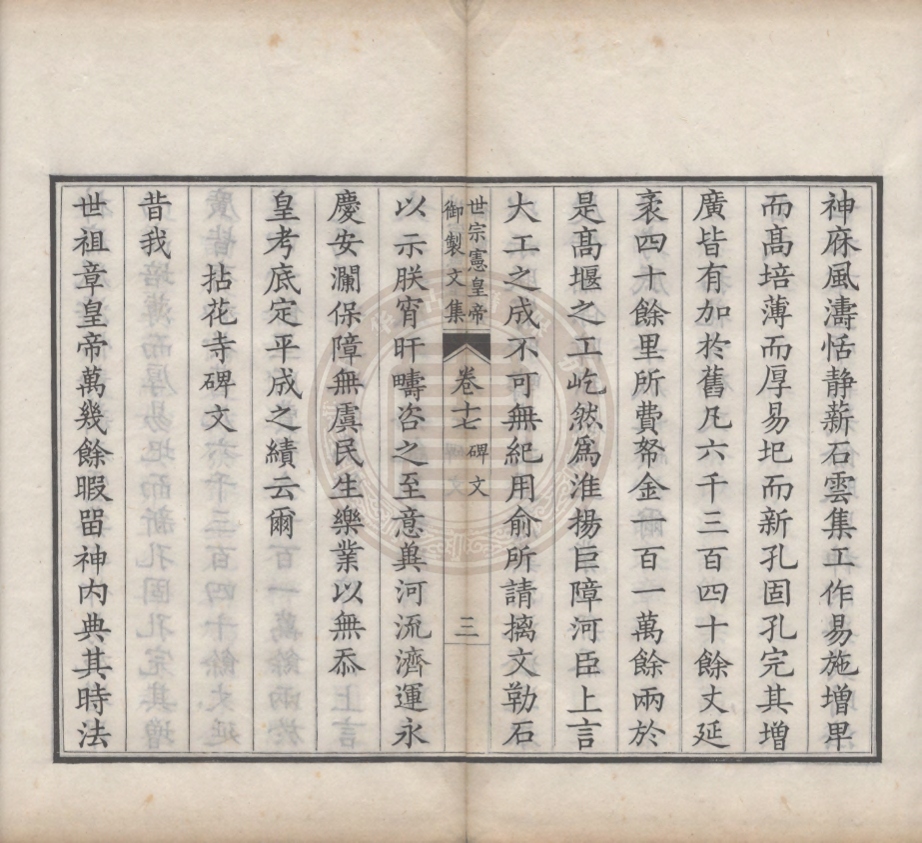 神庥風濤恬静薪石雲集工作易施增卑
而髙培薄而厚易圮而新孔固孔完其增
廣皆有加於舊凡六千三百四十餘丈延
袤四十餘里所費帑金一百一萬餘兩於
是髙堰之工屹然爲淮揚巨障河臣上言
大工之成不可無紀用俞所請摛文勒石
世宗憲皇帝
御製文集
卷十七
碑文
三
以示朕宵旰疇咨之至意兾河流濟運永
慶安瀾保障無虞民生樂業以無忝
皇考底定平成之績云爾
拈花寺碑文
昔我
世祖章皇帝萬幾餘暇畱神内典其時法